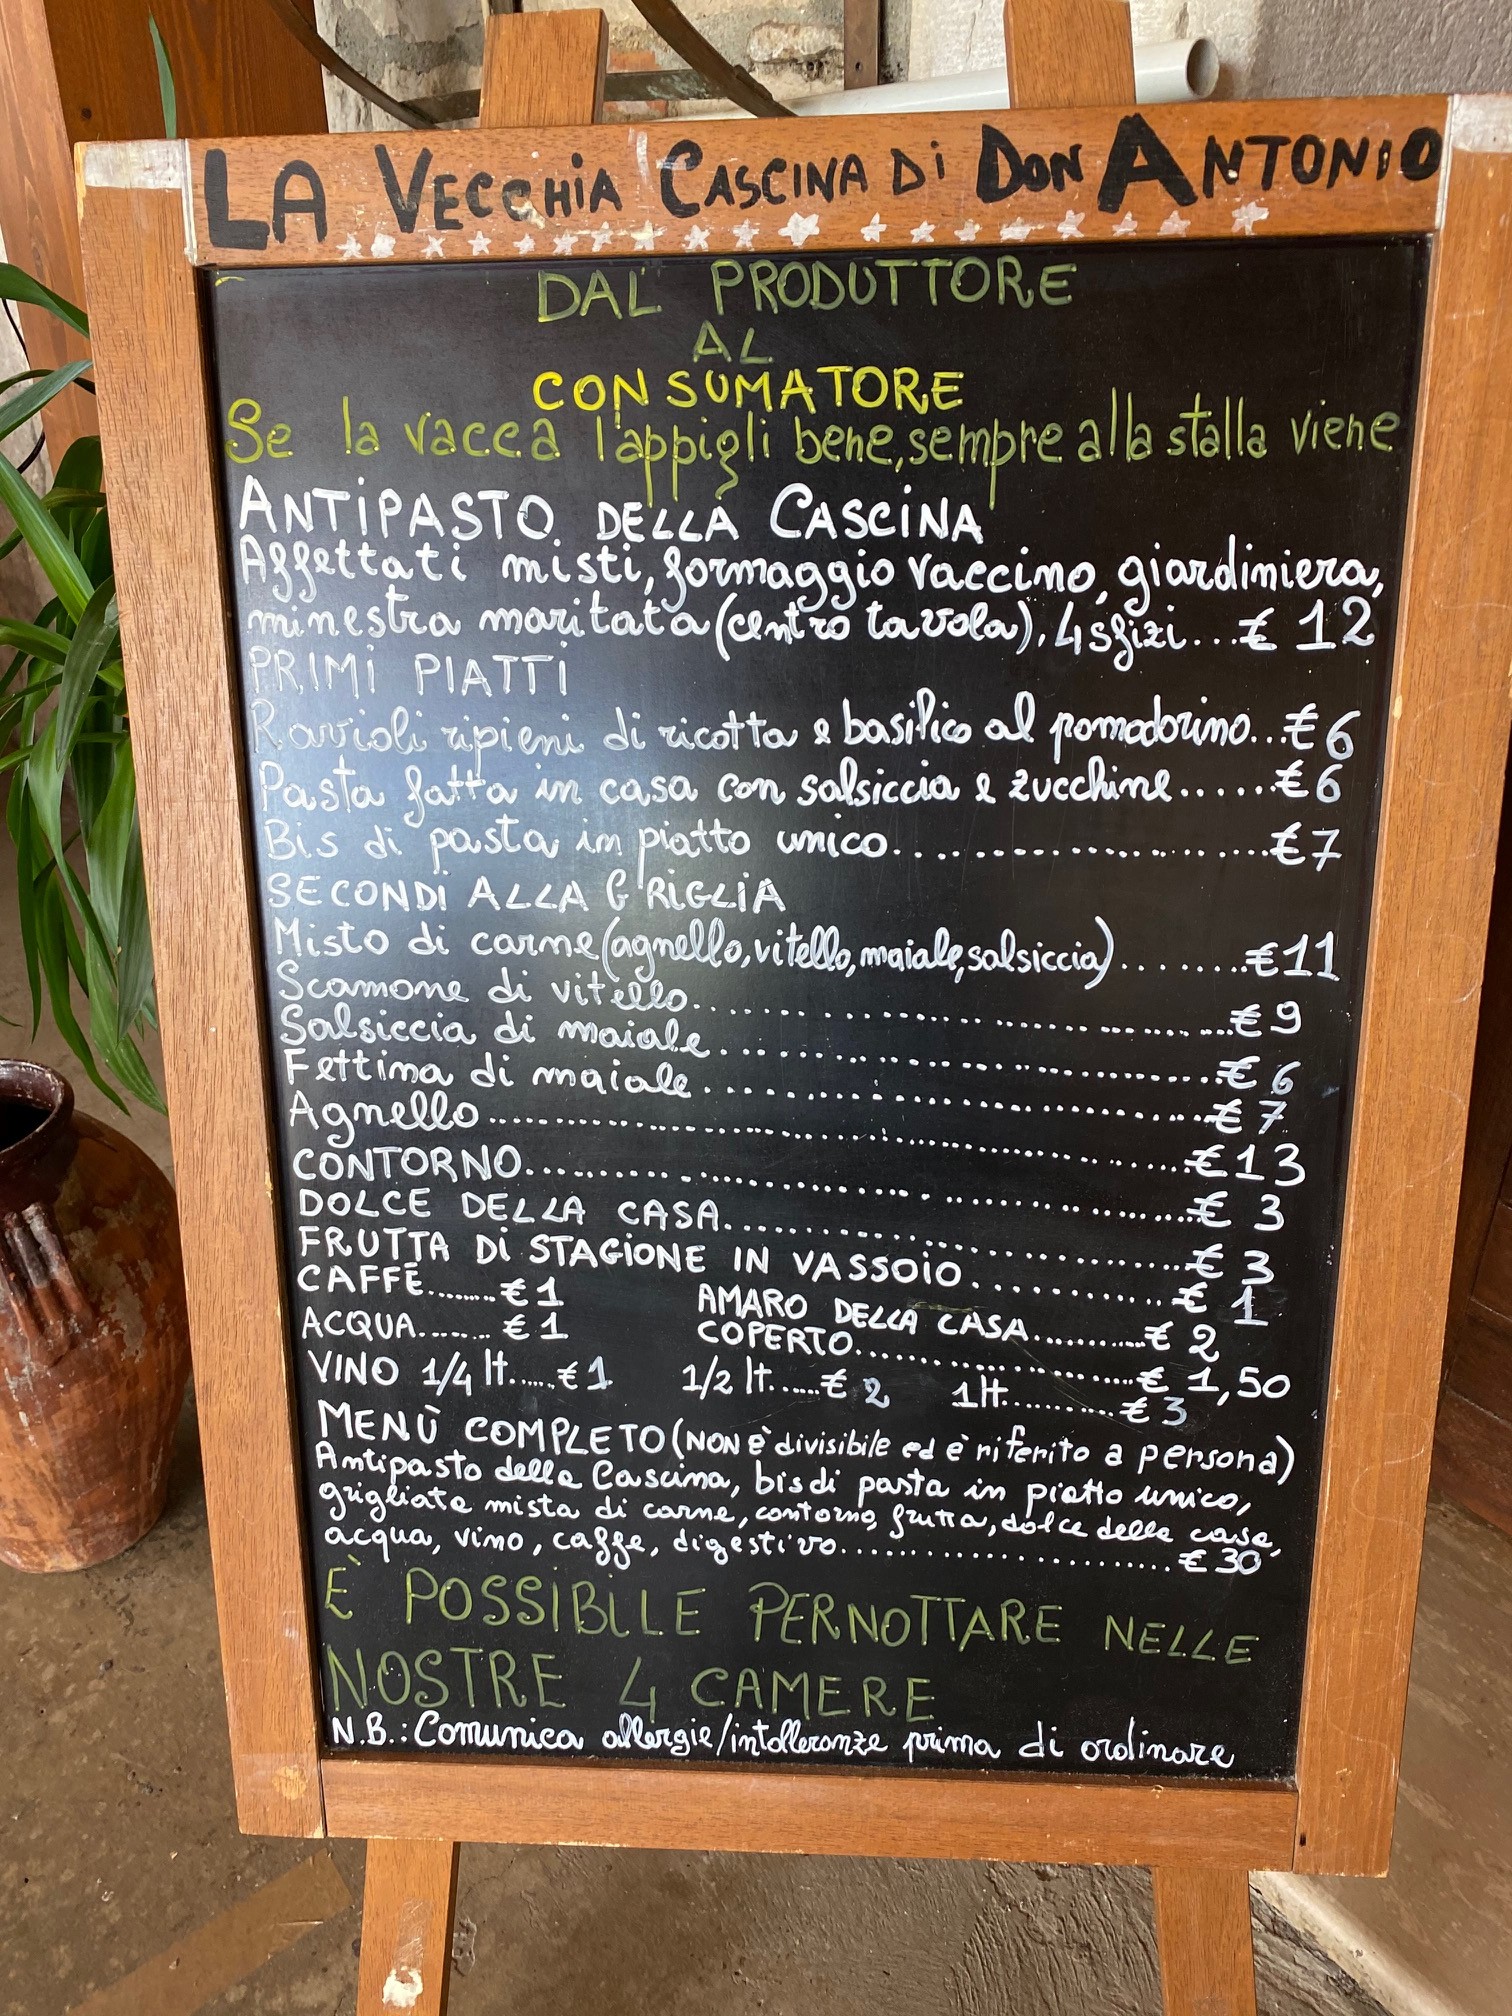 LA VECCHIA CASCINA DI DON ANTONIO
DAL PRODUTTORE
AL
CONSUMATORE
Se la vacca l'appigli bene, sempre alla stalla viene
ANTIPASTO DELLA CASCINA
Affettati misti, formaggio vaccino, giardiniera,
minestra maritata (centro tavola), 4 sfizi... € 12
PRIMI PIATTI
Ravioli ripieni di ricotta e basilico al pomodorino...€ 6
Pasta fatta in casa con salsiccia e zucchine......€6
Bis di pasta in piatto unico.....................€7
SECONDI ALLA GRIGLIA
Misto di carne (agnello, vitello, maiale, salsiccia)........€11
Scamone di vitello..............................€9
Salsiccia di maiale..............................€ 6
Fettina di maiale..............................€ 7
Agnello..............................€13
CONTORNO..............................€ 3
DOLCE DELLA CASA..............................€ 3
FRUTTA DI STAGIONE IN VASSOIO..............€ 1
CAFFÈ........€ 1 AMARO DELLA CASA...........€ 2
ACQUA....... €1 COPERTO......................€ 1,50
VINO 1/4 lt......€1 1/2 lt......€ 2 1lt...........€ 3
MENÙ COMPLETO (NON è divisibile ed è riferito a persona)
Antipasto della Cascina, bis di pasta in piatto unico,
grigliata mista di carne, contorno, frutta, dolce della casa,
acqua, vino, caffe, digestivo..............................€30
È POSSIBILE PERNOTTARE NELLE
NOSTRE 4 CAMERE
N.B.: Comunica allergie/intolleranze prima di ordinare